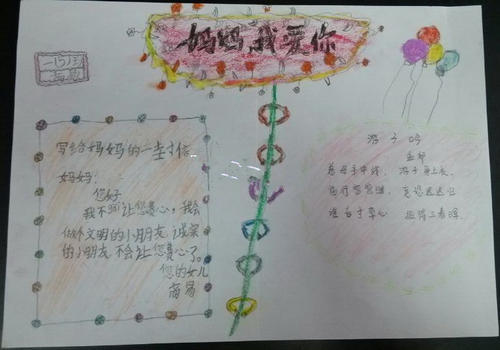 妈妈我爱你
一(5)班
写给妈妈的一封信
妈妈:
您好
我不让您费心,我会
做个文明的小朋友 诚实
的小朋友 不会让您费心了。
您的女儿
游子吟
孟郊
慈母手中线, 游子身上衣
临行密密缝, 意恐迟迟归
谁言寸草心 报得三春晖